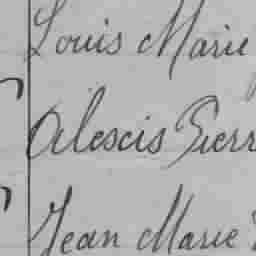 Louis Marie
Alescis Pierr
Jean Marie